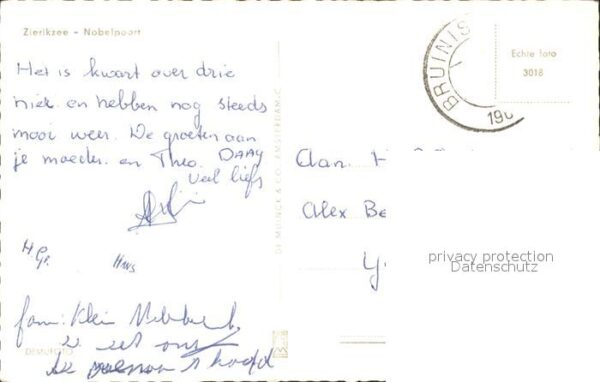 Zierikzee - Nobelpoort
Het is kwart over drie
hier en hebben nog steeds
mooi weer. De groeten aan
je moeder en Theo. DAAG
veel liefs
H. Gr.
Hans
fam. Klein
ons
DEMUFOTO
DE MUINCK & CO. AMSTERDAM-C
BRUINIS
Echte foto
3018
Aan
Alex Be
privacy protection
Datenschutz